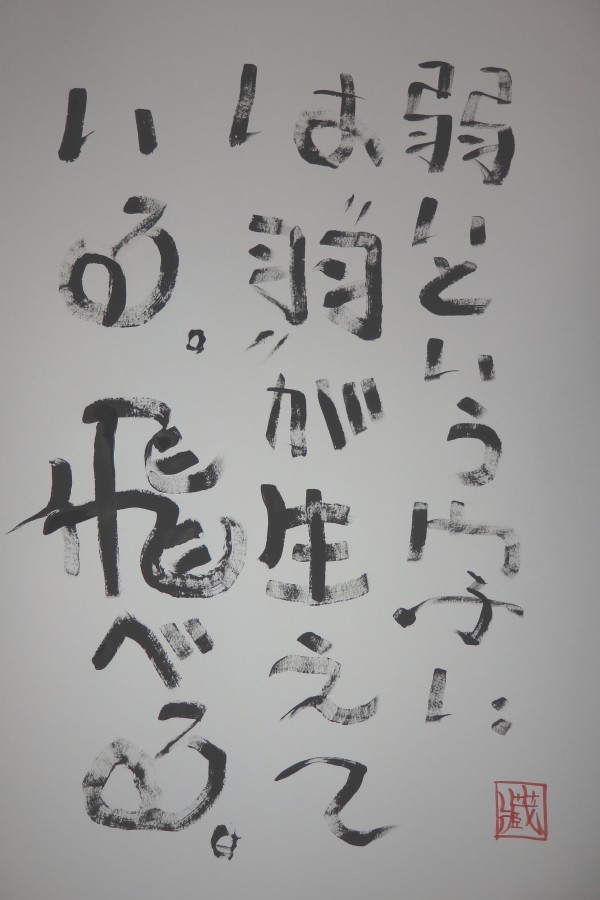 弱いという字に
は“羽”が生えて
いる。飛べる。
蔵